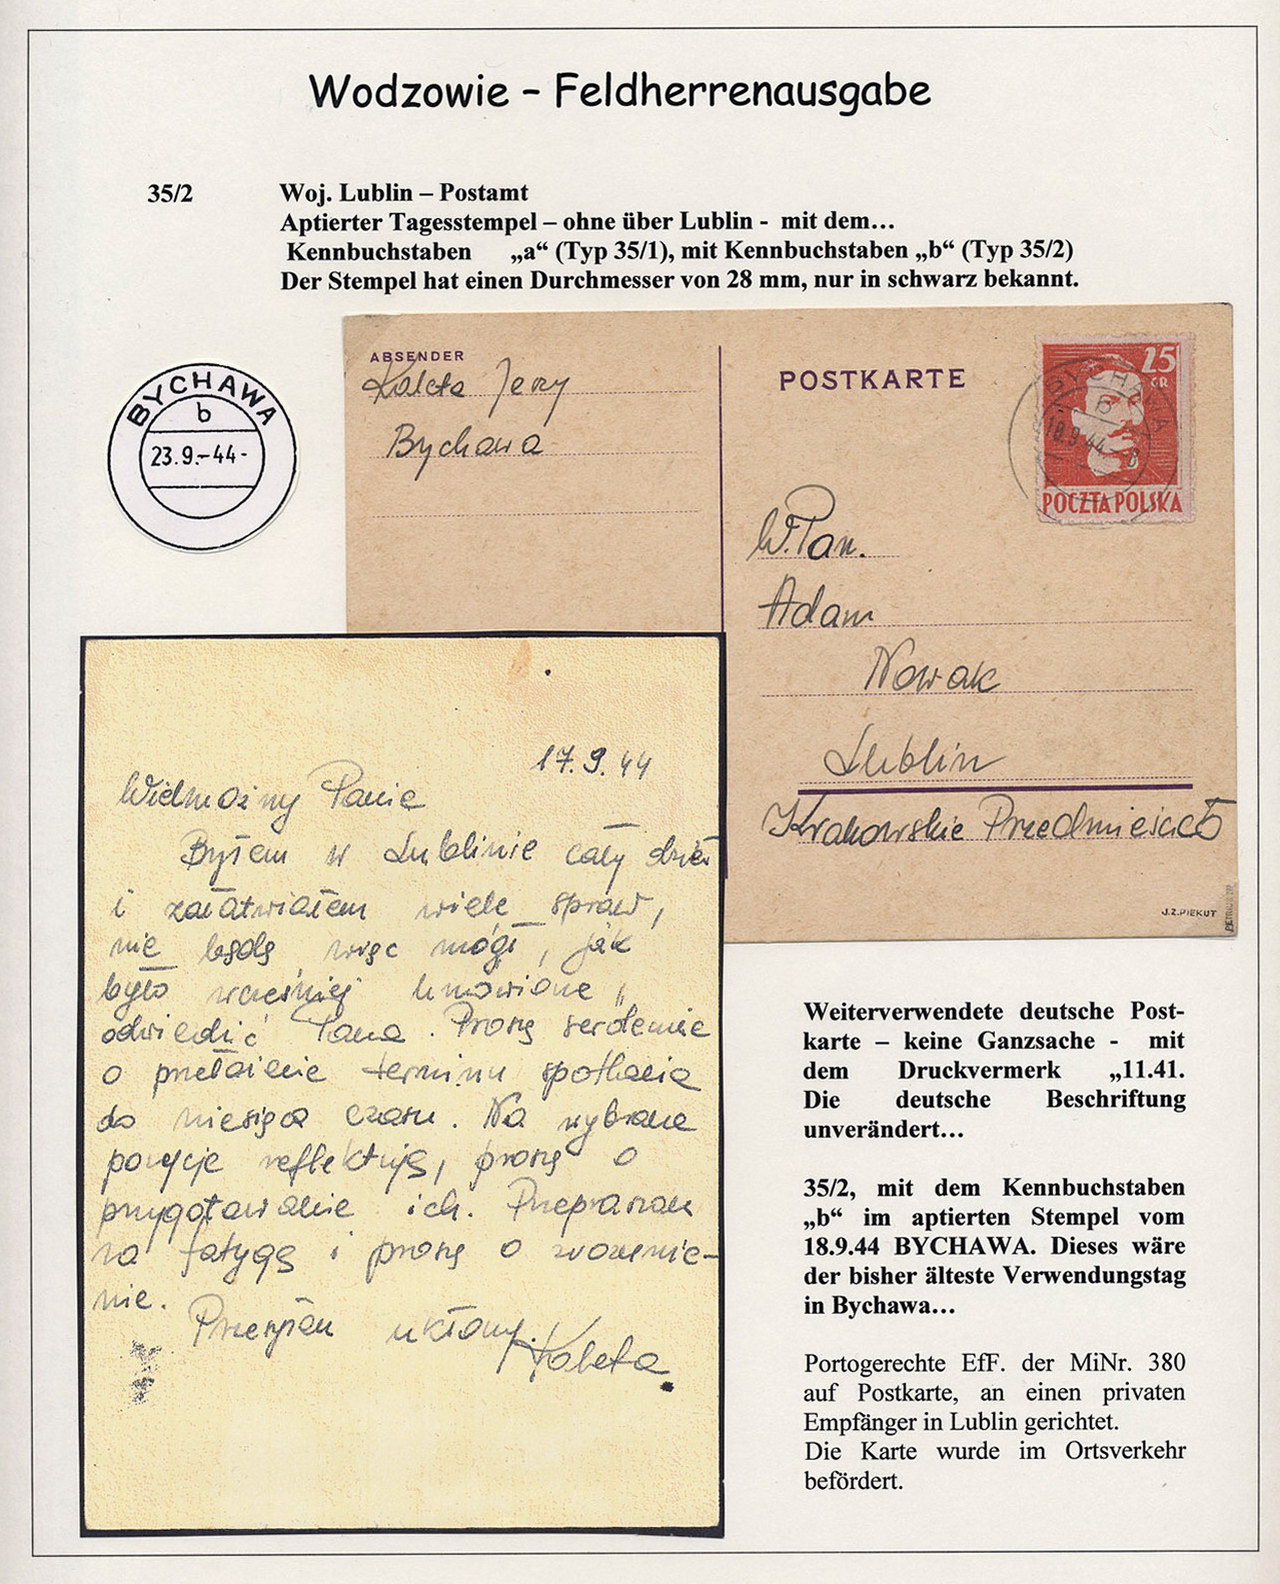 Wodzowie – Feldherrenausgabe
35/2
Woj. Lublin – Postamt
Aptierter Tagesstempel – ohne über Lublin - mit dem…
Kennbuchstaben „a“ (Typ 35/1), mit Kennbuchstaben „b“ (Typ 35/2)
Der Stempel hat einen Durchmesser von 28 mm, nur in schwarz bekannt.
BYCHAWA
b
23.9.-44-
ABSENDER
Kaleta Jerzy
Bychawa
POSTKARTE
25
GR
BYCHAWA
b
18.9.44
POCZTA POLSKA
W.Pan.
Adam
Nowak
Lublin
Krakowskie Przedmieście 5
J.Z.PIEKUT
17.9.44
Wielmożny Panie
Byłem w Lublinie cały dzień
i załatwiałem wiele spraw,
nie będę więc mógł, jak
było wcześniej umówione,
odwiedzić Pana. Proszę serdecznie
o przełożenie terminu spotkania
do miesiąca czasu. Na wybrane
pozycje reflektuję, proszę o
przygotowanie ich. Przepraszam
za fatygę i proszę o zrozumie-
nie.
Przesyłam ukłony.
Kaleta
Weiterverwendete deutsche Post-
karte – keine Ganzsache - mit
dem Druckvermerk „11.41.
Die deutsche Beschriftung
unverändert…
35/2, mit dem Kennbuchstaben
„b“ im aptierten Stempel vom
18.9.44 BYCHAWA. Dieses wäre
der bisher älteste Verwendungstag
in Bychawa…
Portogerechte EfF. der MiNr. 380
auf Postkarte, an einen privaten
Empfänger in Lublin gerichtet.
Die Karte wurde im Ortsverkehr
befördert.